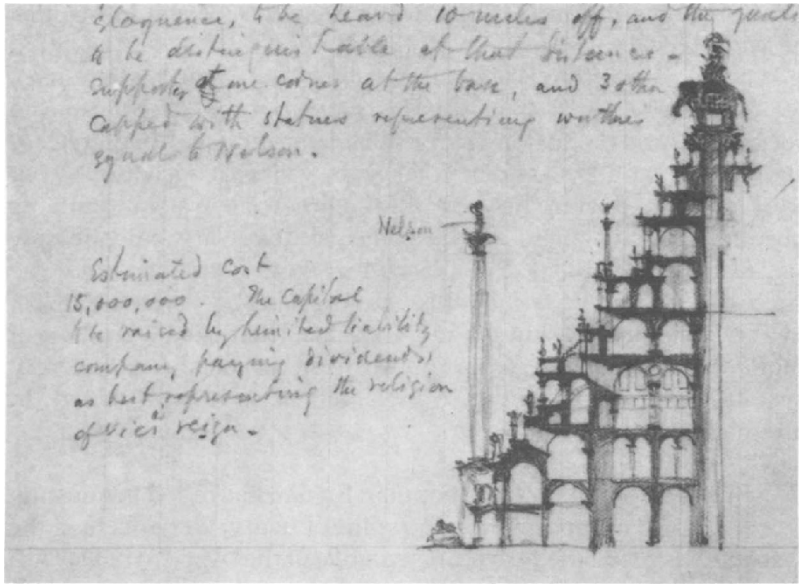 eloquence, to be heard 10 miles off, and the goals
to be distinguishable at that distance -
Support at one corner at the base, and 3 other
capped with statues representing worthies
equal to Nelson.
Nelson
Estimated cost
15,000,000. The capital
to be raised by limited liability
company, paying dividends,
as best representing the religion
of Vic's reign -